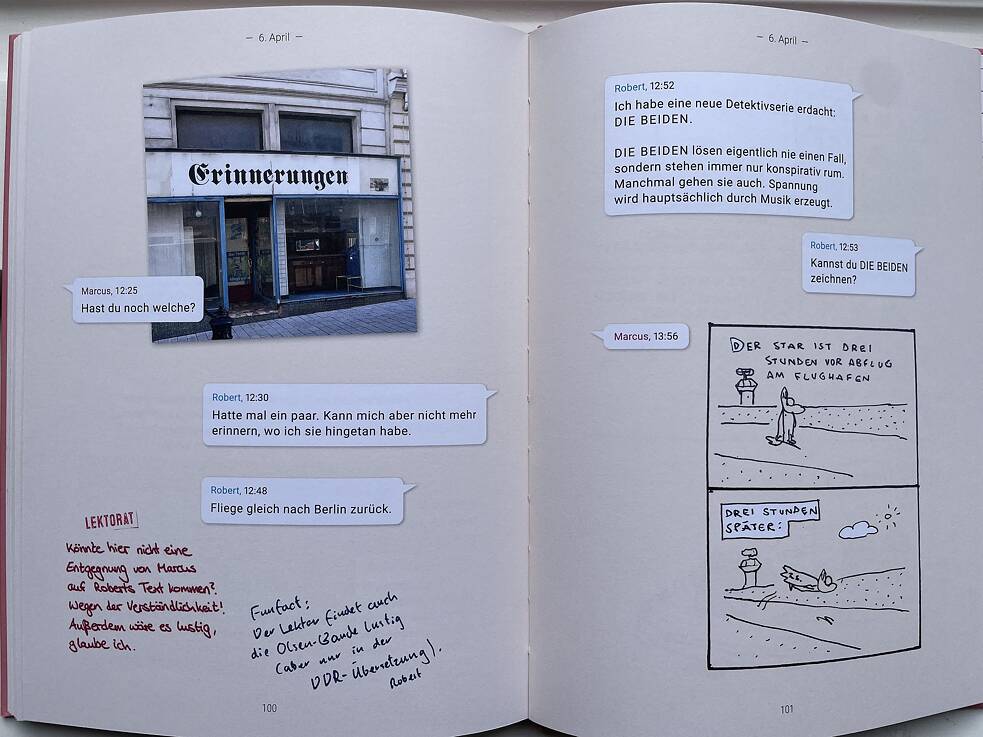 — 6. April —
Erinnerungen
Marcus, 12:25
Hast du noch welche?
Robert, 12:30
Hatte mal ein paar. Kann mich aber nicht mehr
erinnern, wo ich sie hingetan habe.
Robert, 12:48
Fliege gleich nach Berlin zurück.
LEKTORAT
Könnte hier nicht eine
Entgegnung von Marcus
auf Roberts Text kommen?
Wegen der Verständlichkeit!
Außerdem wäre es lustig,
glaube ich.
Funfact:
Der Lektor findet auch
die Olsen-Bande lustig
(aber nur in der
DDR-Übersetzung).
Robert
100
— 6. April —
Robert, 12:52
Ich habe eine neue Detektivserie erdacht:
DIE BEIDEN.
DIE BEIDEN lösen eigentlich nie einen Fall,
sondern stehen immer nur konspirativ rum.
Manchmal gehen sie auch. Spannung
wird hauptsächlich durch Musik erzeugt.
Robert, 12:53
Kannst du DIE BEIDEN
zeichnen?
Marcus, 13:56
DER STAR IST DREI
STUNDEN VOR ABFLUG
AM FLUGHAFEN
DREI STUNDEN
SPÄTER:
101